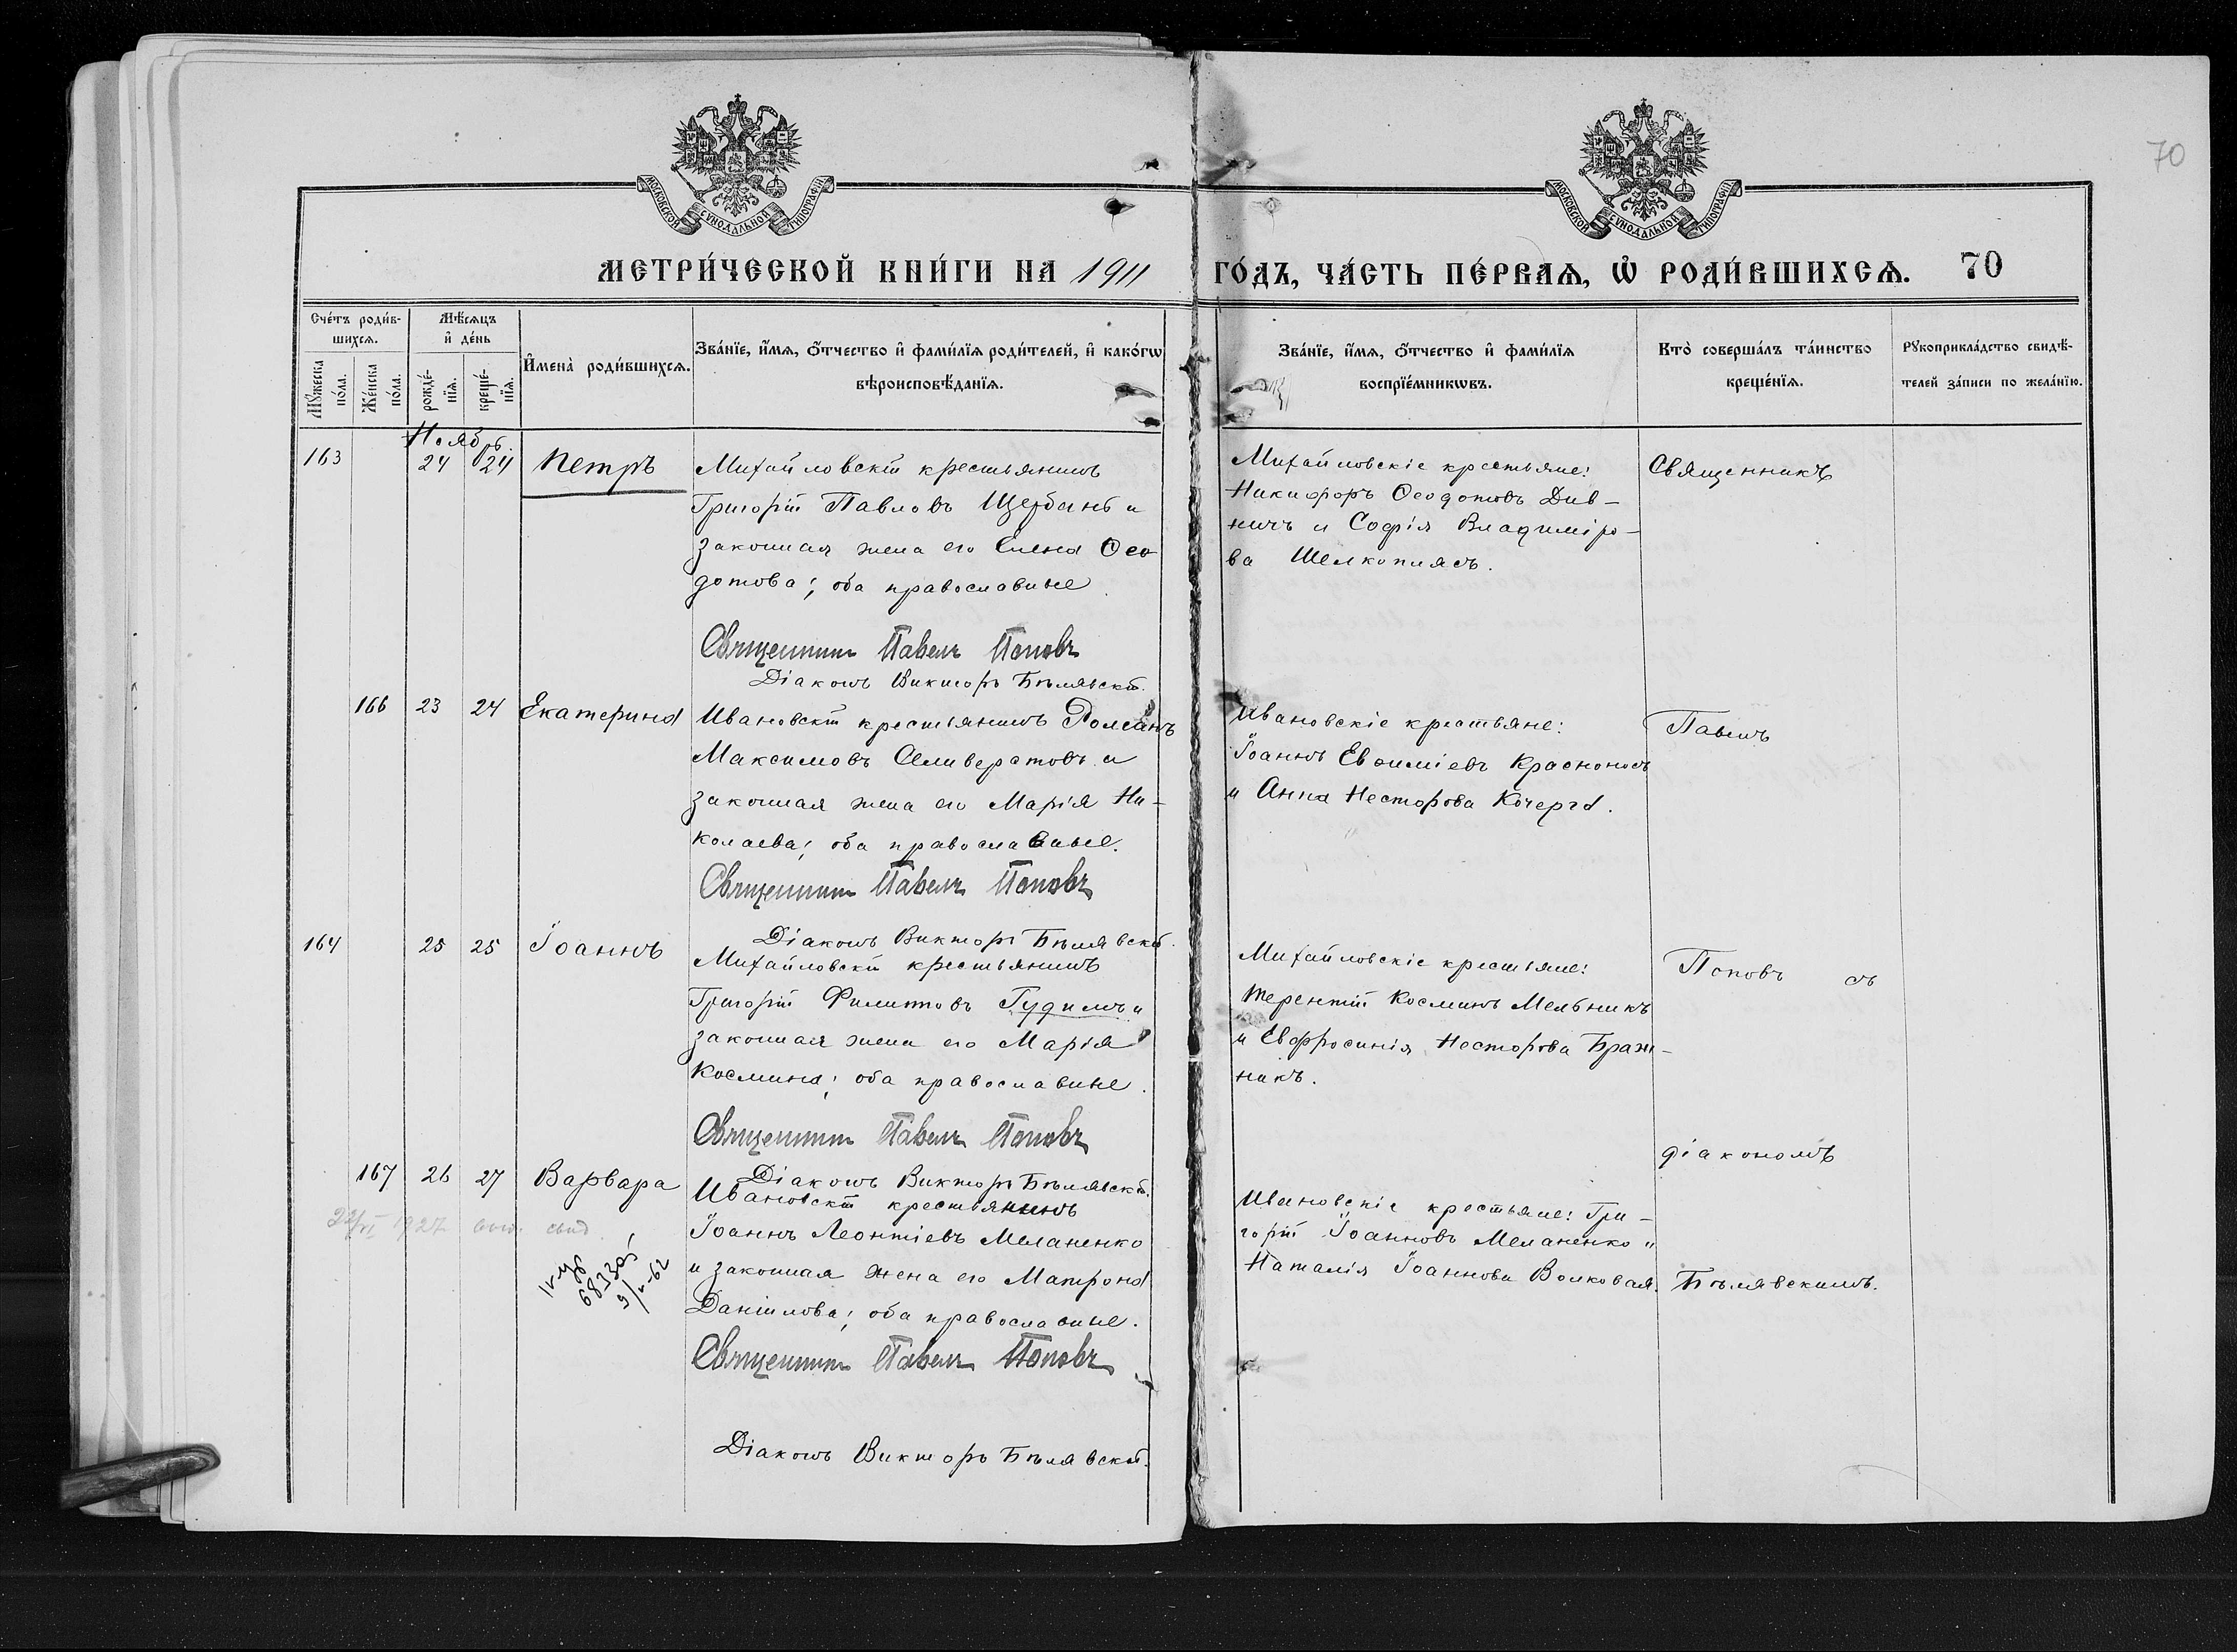 МОСКОВСКОЙ СѴНОДАЛЬНОЙ ТИПОГРАФІИ
МОСКОВСКОЙ СѴНОДАЛЬНОЙ ТИПОГРАФІИ
70
МЕТРИ́ЧЕСКОЙ КНИ́ГИ НА 1911
ГО́ДЪ, ЧА́СТЬ ПЕ́РВАѦ, Ѡ҆ РОДИ́ВШИХСѦ. 70
Сче́тъ роди́в-
шихсѧ.
Мꙋ́жеска по́ла.
Же́нска по́ла.
Мѣ́сѧцъ
и҆ де́нь
рожде́-
нїѧ.
креще́-
нїѧ.
И҆мена̀ роди́вшихсѧ.
Зва́нїе, и҆́мѧ, ѻ҆́тчество и҆ фами́лїѧ роди́телей, и҆ како́гѡ
вѣроисповѣ́данїѧ.
Зва́нїе, и҆́мѧ, ѻ҆́тчество и҆ фами́лїѧ
воспрїе́мникѡвъ.
Кто̀ соверша́лъ та́инство
креще́нїѧ.
Рꙋкоприкла́дство свидѣ́-
телей за́писи по жела́нїю.
Ноябрь.
163 24 24 Петръ
Михайловскій крестьянинъ
Григорій Павловъ Щербань и
законная жена его Елена Ѳео
дотова; оба православные.
Священникъ Павелъ Поповъ
Діаконъ Викторъ Бѣлявскій.
Михайловскіе крестьяне:
Никифоръ Ѳеодотовъ Див-
ничъ и Софія Владиміро-
ва Шелкоплясъ.
Священникъ
166 23 24 Екатерина
Ивановскій крестьянинъ Романъ
Максимовъ Селиверстовъ и
законная жена его Марія Ни-
колаева; оба православные.
Священникъ Павелъ Поповъ
Діаконъ Викторъ Бѣлявскій.
Ивановскіе крестьяне:
Іоаннъ Евѳиміевъ Красноносъ
и Анна Несторова Кочерга.
Павелъ
164 25 25 Іоаннъ
Михайловскій крестьянинъ
Григорій Филипповъ Гудимъ и
законная жена его Марія
Космина; оба православные.
Священникъ Павелъ Поповъ
Діаконъ Викторъ Бѣлявскій.
Михайловскіе крестьяне:
Терентій Косминъ Мельникъ
и Евфросинія Несторова Браж-
никъ.
Поповъ съ
діакономъ
167 26 27 Варвара
22/VI 1927 свид.
68330
9/V-62
Ивановскій крестьянинъ
Іоаннъ Леонтіевъ Меланенко
и законная жена его Матрона
Даніилова; оба православные.
Священникъ Павелъ Поповъ
Діаконъ Викторъ Бѣлявскій.
Ивановскіе крестьяне: Гри-
горій Іоанновъ Меланенко и
Наталія Іоаннова Волковая.
Бѣлявскимъ.